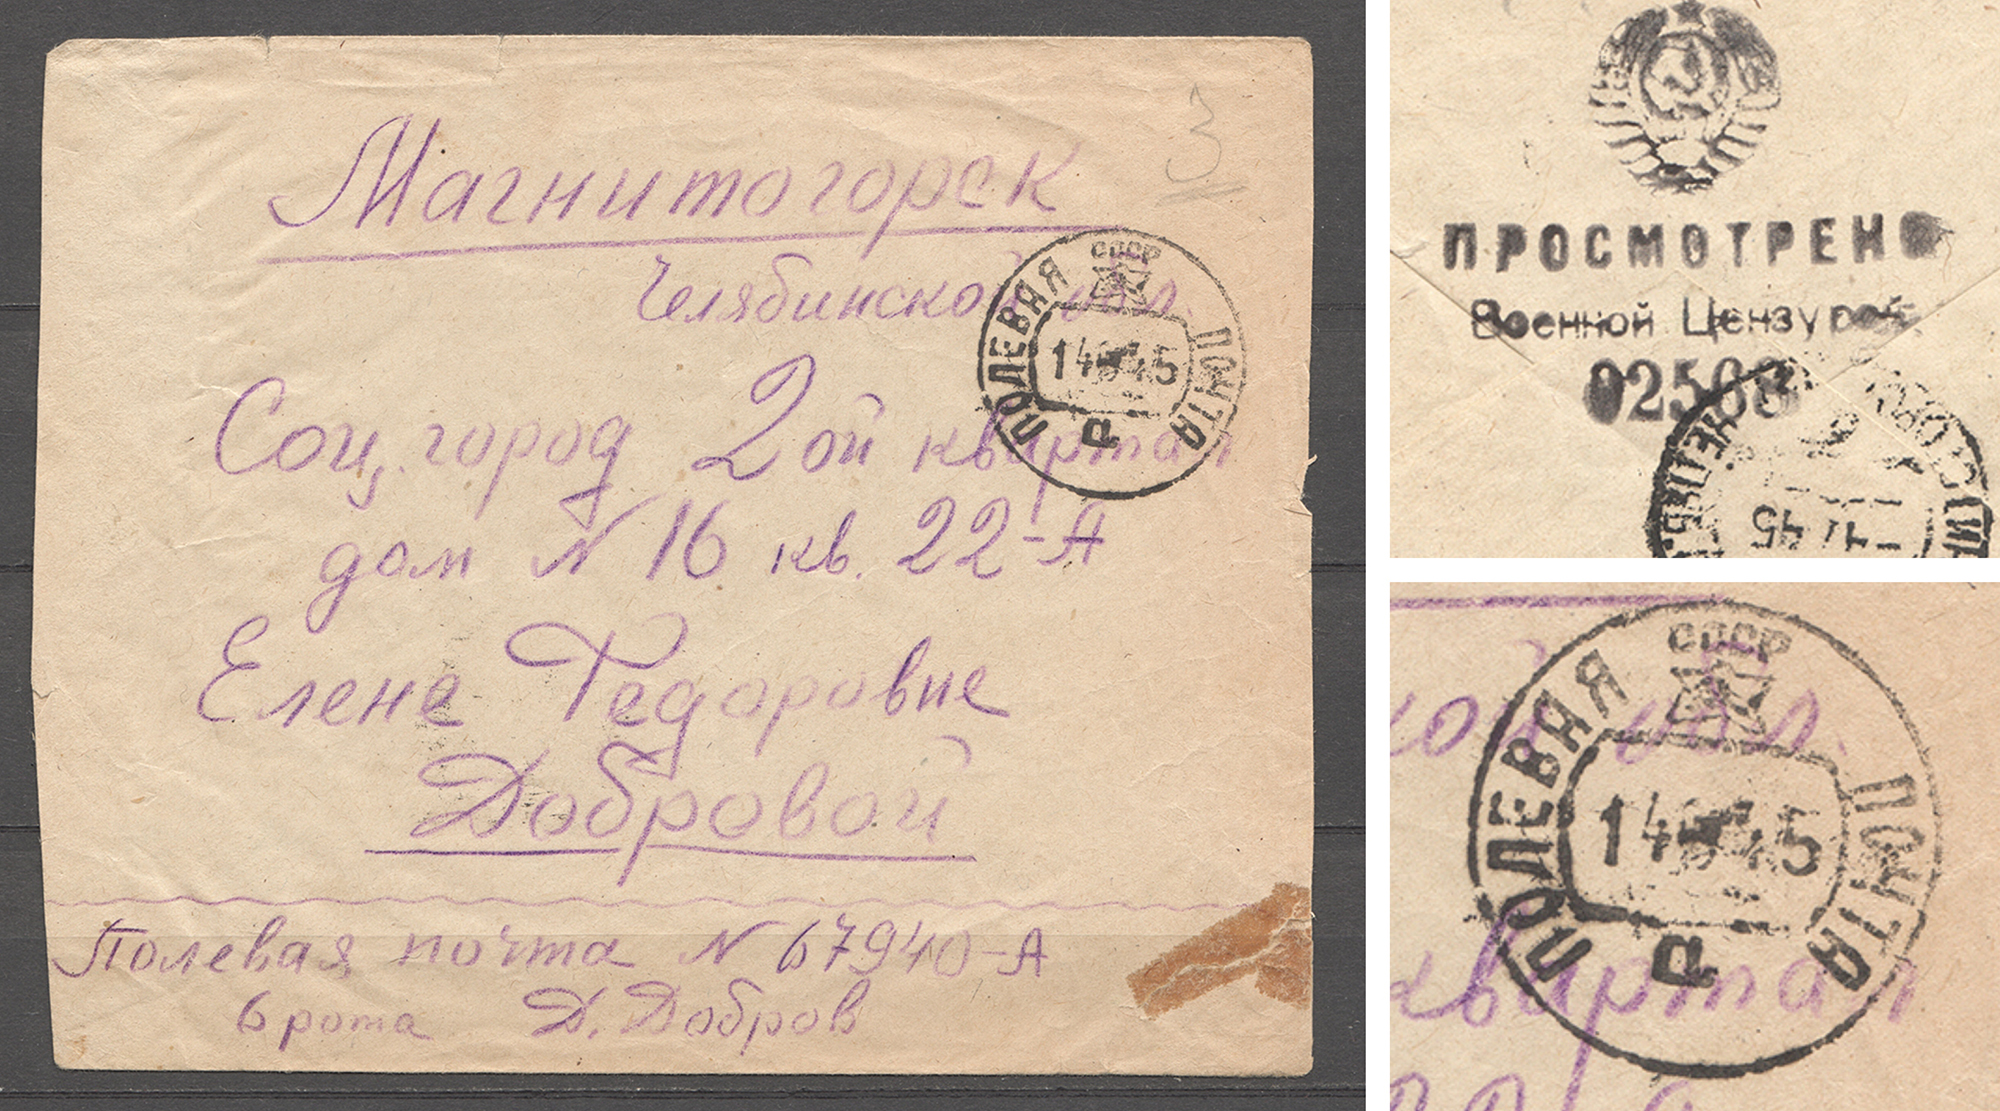 3
Магнитогорск
Челябинской обл.
Соц. город 2ой квартал
дом N 16 кв. 22-А
Елене Федоровне
Добровой
Полевая почта N 67940-А
6 рота Д. Добров
СССР
ПОЛЕВАЯ ПОЧТА
14 45
Д
ПРОСМОТРЕНО
Военной Цензурой
СССР
ПОЛЕВАЯ ПОЧТА
14 45
Д
кой обл.
квартал